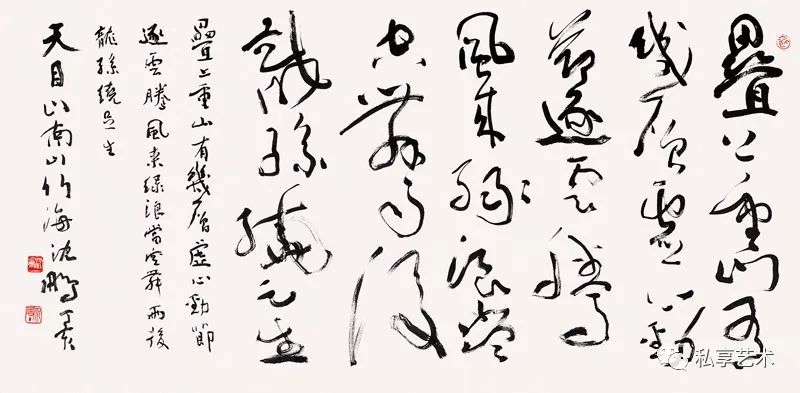 疊〻重山有
幾層虛心勁
節逐雲騰
風來綠浪當
空舞雨後
龍孫繞足生
疊〻重山有幾層虛心勁節
逐雲騰風來綠浪當空舞雨後
龍孫繞足生
天目山南山竹海沈鵬
私享艺术